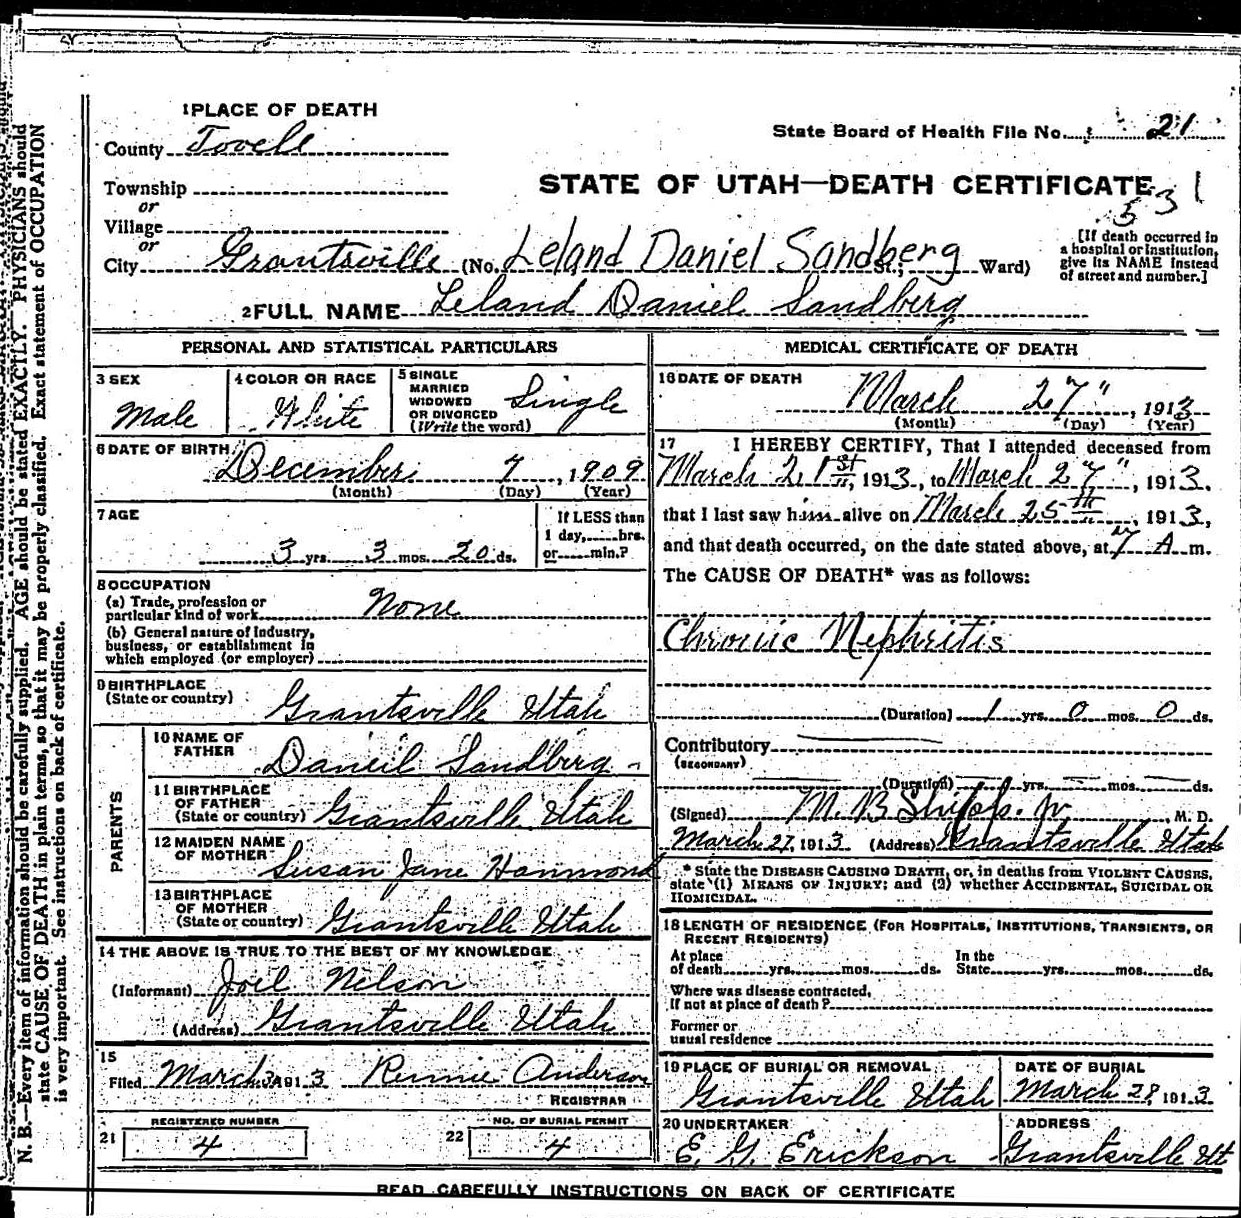 1 PLACE OF DEATH
County Tooele
State Board of Health File No. 21
Township
or
STATE OF UTAH—DEATH CERTIFICATE
531
Village
or
City Grantsville (No. Leland Daniel Sandberg St.; Ward)
[If death occurred in
a hospital or institution,
give its NAME instead
of street and number.]
2 FULL NAME Leland Daniel Sandberg
PERSONAL AND STATISTICAL PARTICULARS
3 SEX
Male
4 COLOR OR RACE
White
5 SINGLE
MARRIED
WIDOWED
OR DIVORCED
(Write the word)
Single
6 DATE OF BIRTH
December 7, 1909
(Month) (Day) (Year)
7 AGE
3 yrs. 3 mos. 20 ds.
If LESS than
1 day, hrs.
or min.?
8 OCCUPATION
(a) Trade, profession or
particular kind of work None
(b) General nature of industry,
business, or establishment in
which employed (or employer)
9 BIRTHPLACE
(State or country) Grantsville Utah
PARENTS
10 NAME OF
FATHER Daneil Sandberg
11 BIRTHPLACE
OF FATHER
(State or country) Grantsville Utah
12 MAIDEN NAME
OF MOTHER Susan Jane Hammond
13 BIRTHPLACE
OF MOTHER
(State or country) Grantsville Utah
14 THE ABOVE IS TRUE TO THE BEST OF MY KNOWLEDGE
(Informant) Joel Nelson
(Address) Grantsville Utah
15
Filed March 1913 Rennie Anderson
REGISTRAR
REGISTERED NUMBER
21 4
NO. OF BURIAL PERMIT
22 4
MEDICAL CERTIFICATE OF DEATH
16 DATE OF DEATH
March 27", 1913
(Month) (Day) (Year)
17 I HEREBY CERTIFY, That I attended deceased from
March 21st, 1913, to March 27", 1913.
that I last saw him alive on March 25th, 1913,
and that death occurred, on the date stated above, at 7 A m.
The CAUSE OF DEATH* was as follows:
Chronic Nephritis
(Duration) 1 yrs. 0 mos. 0 ds.
Contributory
(SECONDARY)
(Duration) yrs. mos. ds.
(Signed) M. B. Shipp. Jr, M. D.
March 27, 1913 (Address) Grantsville Utah
* State the DISEASE CAUSING DEATH, or, in deaths from VIOLENT CAUSES,
state (1) MEANS OF INJURY; and (2) whether ACCIDENTAL, SUICIDAL OR
HOMICIDAL.
18 LENGTH OF RESIDENCE (FOR HOSPITALS, INSTITUTIONS, TRANSIENTS, OR
RECENT RESIDENTS)
At place
of death yrs. mos. ds.
In the
State yrs. mos. ds.
Where was disease contracted,
if not at place of death?
Former or
usual residence
19 PLACE OF BURIAL OR REMOVAL
Grantsville Utah
DATE OF BURIAL
March 28, 1913.
20 UNDERTAKER
E. G. Erickson
ADDRESS
Grantsville Ut
READ CAREFULLY INSTRUCTIONS ON BACK OF CERTIFICATE
N. B.—Every item of information should be carefully supplied. AGE should be stated EXACTLY. PHYSICIANS should
state CAUSE OF DEATH in plain terms, so that it may be properly classified. Exact statement of OCCUPATION
is very important. See instructions on back of certificate.